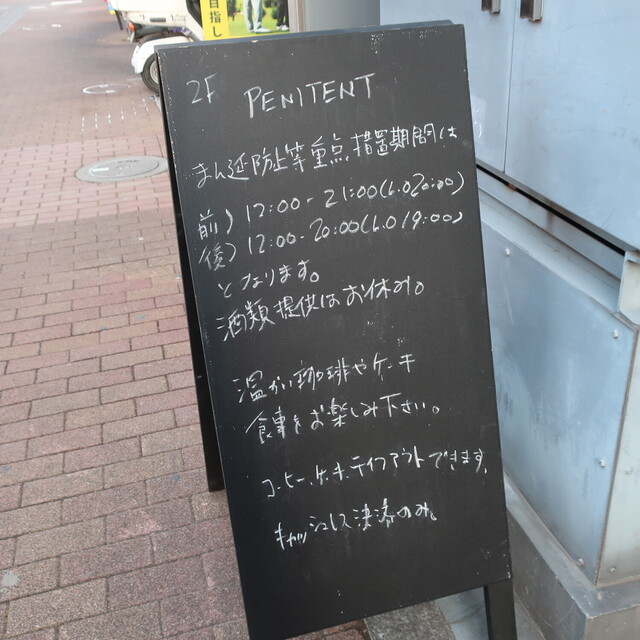 目指し
2F PENITENT
まん延防止等重点措置期間は
前) 12:00-21:00(L.O 20:00)
後) 12:00-20:00(L.O 19:00)
となります。
酒類提供はお休み。
温かい珈琲やケーキ
食事をお楽しみ下さい。
コーヒー、ケーキ、テイクアウトできます。
キャッシュレス決済のみ。